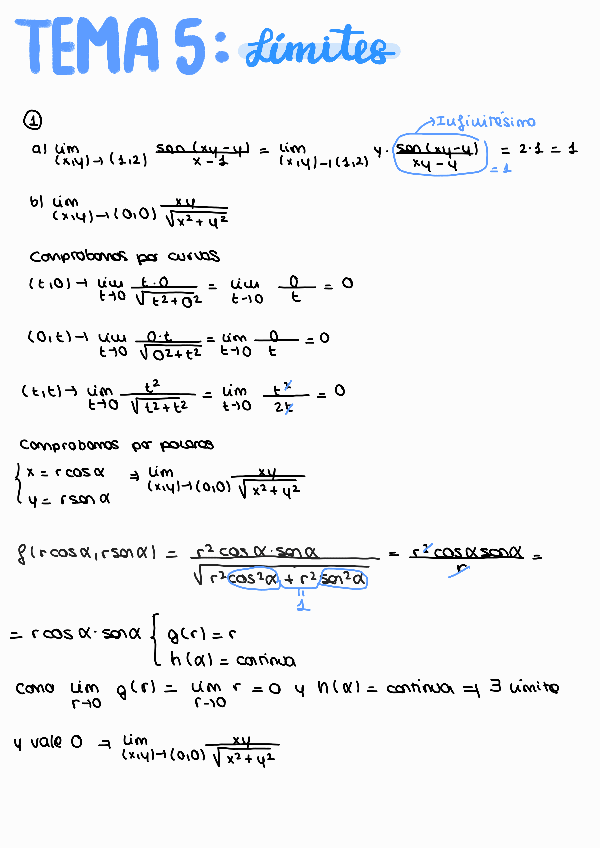 TEMA 5: Límites
①
→ Infinitésimo
a) lim (x,y)→(1,2) sen(xy-y)/x-1 = lim (x,y)→(1,2) y · sen(xy-y)/xy-y = 2·1 = 1
= 1
b) lim (x,y)→(0,0) xy/√x²+y²
Comprobamos por curvas
(t,0) → lim t→0 t·0/√t²+0² = lim t→0 0/t = 0
(0,t) → lim t→0 0·t/√0²+t² = lim t→0 0/t = 0
(t,t) → lim t→0 t²/√t²+t² = lim t→0 t²/2t = 0
Comprobamos por polares
{ x = r cos α ⇒ lim (x,y)→(0,0) xy/√x²+y²
y = r sen α
f(r cos α, r sen α) = r² cos α · sen α/√r² cos² α + r² sen² α = r² cos α sen α/r =
1
= r cos α · sen α { g(r) = r
h(α) = continua
Como lim r→0 g(r) = lim r→0 r = 0 y h(α) = continua ⇒ ∃ límite
y vale 0 ⇒ lim (x,y)→(0,0) xy/√x²+y²